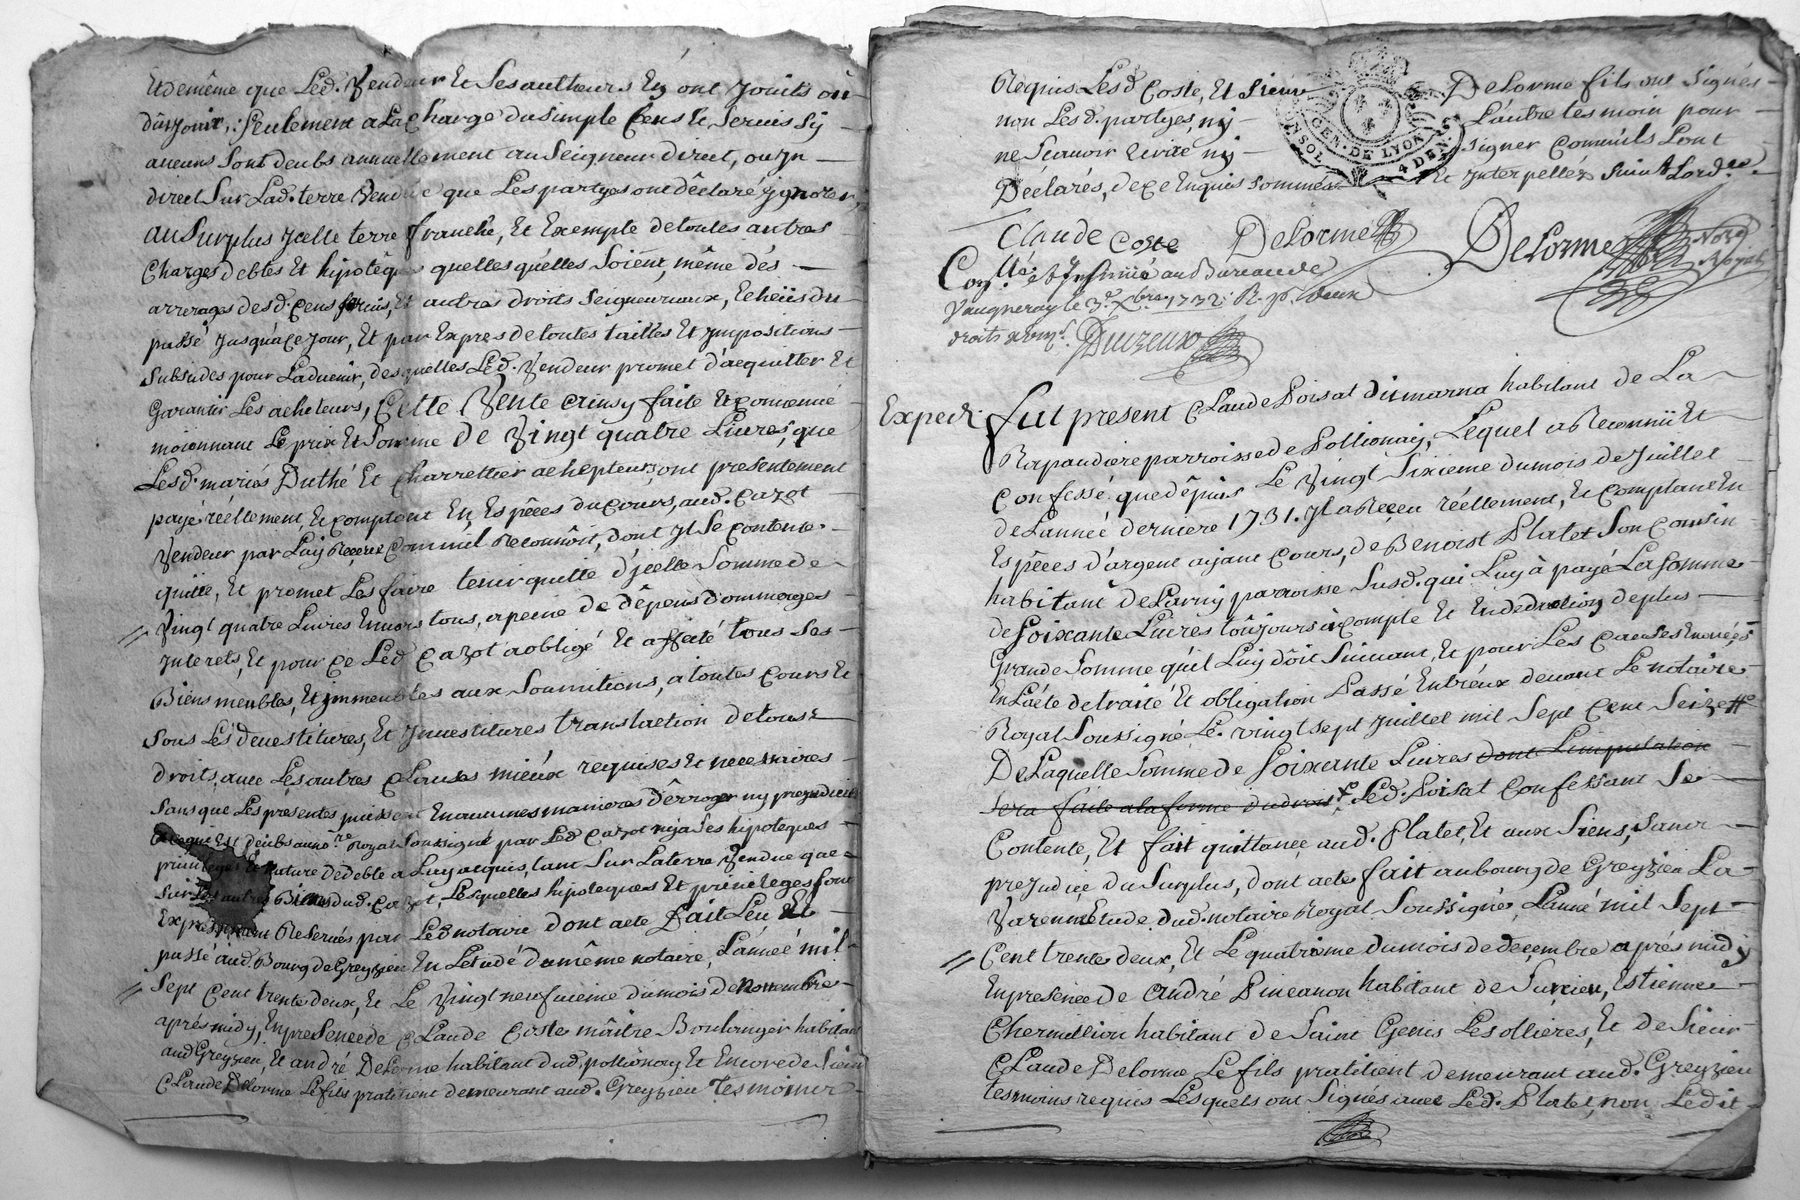 Et de même que Led. Vendeur Et Ses autheurs En ont Jouits ou
dû Jouir, Seulement a La Charge du Simple Cens Et Servis Sy
aucuns Sont deubs annuellement au Seigneur direct, ou Jn
direct Sur Lad. terre Vendue que Les partyes ont dêclaré ygnorer,
au Surplus Jcelle terre franche, Et Exempte de toutes autres
Charges debtes Et hipotêques quelles qu'elles Soient, même dés
arrerages desd. Cens Servis, Et autres droits Seigneuriaux, Echeüs du
passé Jusquâ Ce Jour, Et par Expres de toutes tailles Et Jmpositions
Subsides pour Ladvenir, desquelles Led. Vendeur promet d'acquitter Et
Garantir Les acheteurs, Cette Vente ainsy faite Et Convenüe
moiennant Le prix Et Somme de Vingt quatre Livres, que
Lesd. mariés Duthé Et Charrettier achepteurs ont presentement
payé réellement, Et Comptant En Espêces du Cours, aud. Cazot
Vendeur par Luy Reçeue Comme il Reconnoit, dont Jl Se Contente
quitte, Et promet Les faire tenir quitte d'jcelle Somme de
Vingt quatre Livres Envers tous, a peine de dêpens dommages
Jnterets, Et pour Ce Led. Cazot a obligé Et affecté tous Ses
Biens meubles, Et Jmmeubles aux Soumitions, a toutes Cours Et
Sous Les devestitures, Et Jnvestitures translaction de tous
droits, avec Les autres Clauses mieux requises Et necessaires
Sans que Les presentes puissent En aucunes manieres dêrroger ny prejudicier
a Ce qui Est deub au no.re Royal Soussigné par Led. Cazot ny a Ses hipoteques
privileges Et Nature de debte a Luy acquis, tant Sur La terre Vendue que
Sur Les autres Biens dud. Cazot, Lesquelles hipoteques Et privileges Sont
Expressement Reservés par Led. notaire dont acte Fait Leu Et
passé aud. Bourg de Greyzieu En Letude du même notaire, L'année mil
Sept Cent trente deux, Et Le Vingt neufvieme du mois de Novembre
aprés midy, En presence de Claude Coste maître Boulanger habitant
aud. Greyzieu, Et andré Delorme habitant dud. pollionay Et Encore de Sieur
Claude Delorme Le fils pratitient demeurant aud. Greyzieu Tesmoins
Requis Lesd. Coste, Et Sieur Delorme fils ont Signés
non Lesd. partyes, ny L'autre tesmoin pour
ne Scavoir Ecrire ny Signer Comm'ils L'ont
Déclarés, de Ce Enquis Sommés Et Jnterpellés Suivt. Lord.ce
GEN. DE LYON
4 DEN.
Claude Coste Delorme Delorme Not.e Royal
Con.llé Et Jnsinüé au Bureau de
Vaugneray le 3.e Xbre 1732 R.
droits
Expedi. Fut present Claude Poisat dit marna habitant de La
Rapaudiere parroisse de Pollionay, Lequel a Reconnü Et
Confessé, que dêpuis Le Vingt Sixieme du mois de Juillet
de L'année derniere 1731. Jl a Reçeu réellement, Et Comptant En
Espêces d'argent aÿant Cours, de Benoist Platet Son Cousin
habitant de Larny parroisse Susd. qui Luy à payé La Somme
de Soixante Livres toûjours à Compte Et En deduction de plus
Grande Somme qu'il Luy dôit Suivant, Et pour Les Causes Enoncées
En L'acte de traité Et obligation Passé Entr'eux devant Le notaire
Royal Soussigné Le vingt sept Juillet mil Sept Cent Seize
De Laquelle Somme de Soixante Livres dont L'imputation
sera faite a la forme du droit Led. Poisat Confessant Se
Contente, Et fait quittance aud. Platet, Et aux Siens, Sans
prejudice du Surplus, dont acte fait au bourg de Greyzieu La
Varenne Etude dud. notaire Royal Soussigné, L'anné mil Sept
Cent trente deux, Et Le quatrieme du mois de decembre aprés midy
En presence de André Pincanon habitant de Surcieu, Estienne
Chermillion habitant de Saint Genis Les ollieres, Et de Sieur
Claude Delorme Le fils pratitient demeurant aud. Greyzieu
tesmoins requis Lesquels ont Signés avec Led. Platet, non Ledit